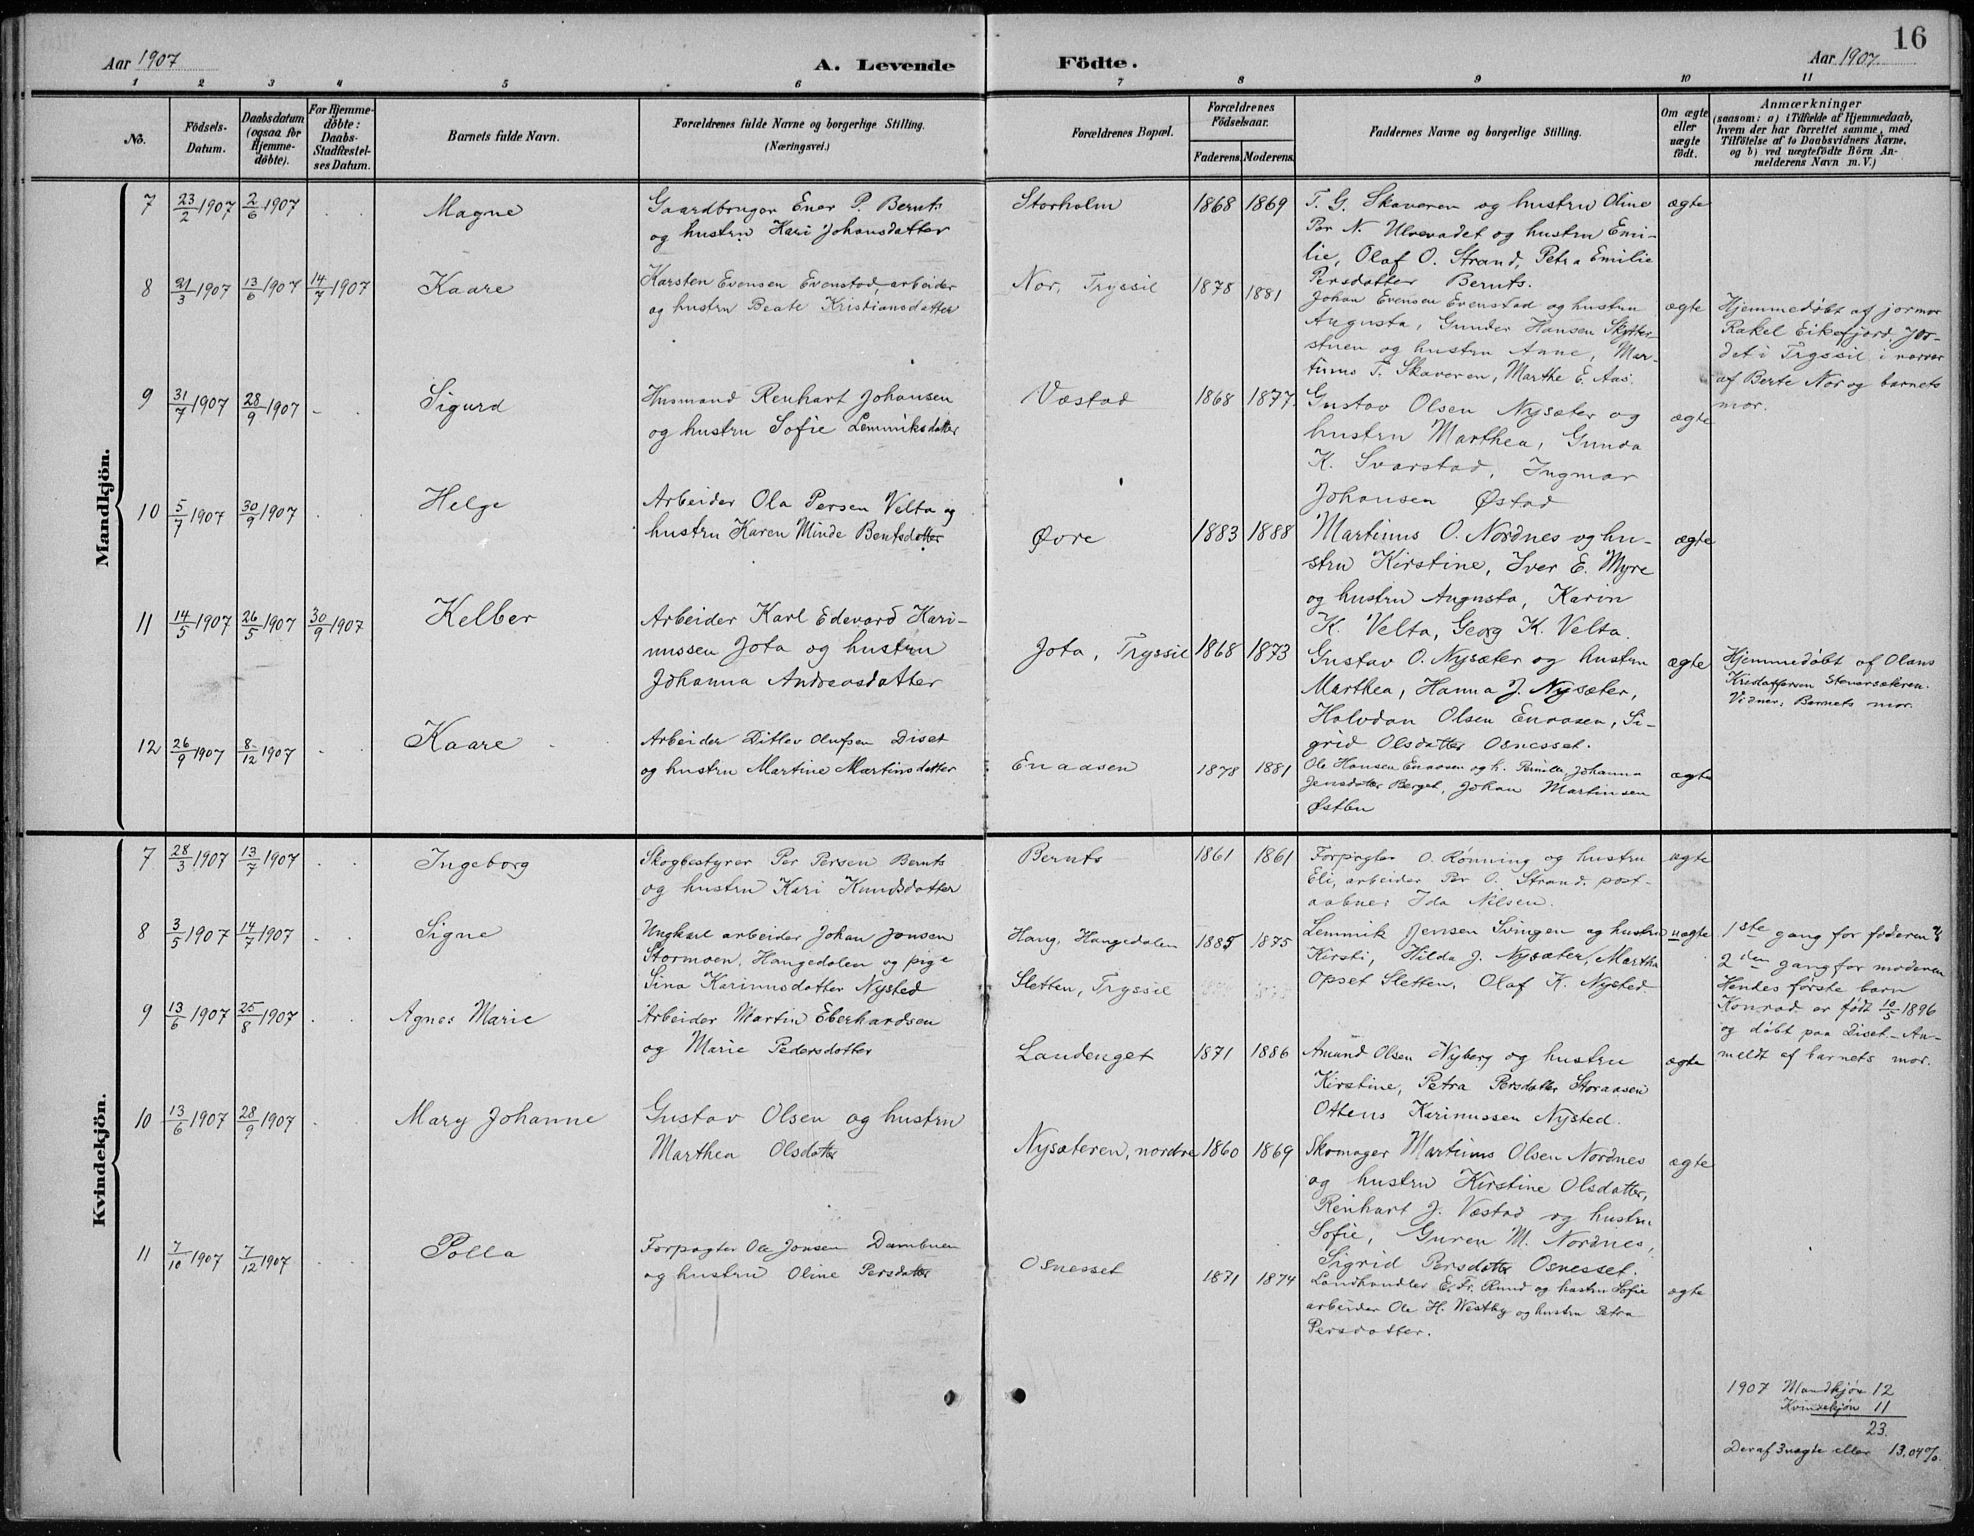 16
Aar 1907
A. Levende Födte.
Aar 1907.
1 2 3 4 5 6 7 8 9 10 11
No.
Födsels-
Datum.
Daabsdatum
(ogsaa för
Hjemme-
döbte).
For Hjemme-
döbte:
Daabs-
Stadfæstel-
ses Datum.
Barnets fulde Navn.
Forældrenes fulde Navne og borgerlige Stilling.
(Næringsvei.)
Forældrenes Bopæl.
Forældrenes
Födselsaar.
Faderens. Moderens.
Faddernes Navne og borgerlige Stilling.
Om ægte
eller
uægte
födt.
Anmærkninger
(saasom: a) i Tilfælde af Hjemmedaab,
hvem der har forrettet samme, med
Tilföielse af to Daabsvidners Navne,
og b) ved uægtefödte Börn An-
melderens Navn m. V.)
Mandkjön.
7 23/2 1907 2/6 1907 . . Magne
Gaardbruger Ener P. Bernts
og hustru Kari Johansdatter
Storholm 1868 1869
T. G. Skaveren og hustru Oline
Per N. Ulvevadet og hustru Emi-
lie, Olaf O. Strand, Petra Emilie
Persdatter Bernts.
ægte
8 21/3 1907 13/6 1907 14/7 1907 Kaare
Karsten Evensen Evenstad, arbeider
og hustru Beate Kristiansdatter
Nor, Tryssil 1878 1881
Johan Evensen Evenstad og hustru
Augusta, Gunder Hansen Skytter-
stuen og hustru Anne, Mar-
tinus T. Skaveren, Marthe E. Aas.
ægte
Hjemmedøbt af jormor
Rakel Eikefjord, Jor-
det i Tryssil i nærvær
af Berte Nor og barnets
mor.
9 31/7 1907 28/9 1907 . . Sigurd
Husmand Renhart Johansen
og hustru Sofie Lemmiksdatter
Væstad 1868 1877.
Gustav Olsen Nysæter og
hustru Marthea, Gunda
K. Svarstad, Ingmar
Johansen Østad
ægte
10 5/7 1907 30/9 1907 . . Helge
Arbeider Ola Persen Velta og
hustru Karen Minde Bentsdatter
Øvre 1883 1888
Martinus O. Nordnes og hu-
stru Kirstine, Iver E. Myre
og hustru Augusta, Karin
K. Velta, Georg K. Velta.
ægte
11 14/5 1907 26/5 1907 30/9 1907 Kelber
Arbeider Karl Edevard Kari-
nussen Jota og hustru
Johanna Andreasdatter
Jota, Tryssil 1868 1873
Gustav O. Nysæter og hustru
Marthea, Hanna J. Nysæter,
Halvdan Olsen Enaasen, Si-
grid Olsdatter Osnesset.
ægte
Hjemmedøbt af Olaus
Kristoffersen Stenersæteren.
Vidner: Barnets mor.
12 26/9 1907 8/12 1907 . . Kaare
Arbeider Ditlev Olufsen Diset
og hustru Martine Martinsdatter
Enaasen 1878 1881
Ole Hansen Enaasen og h. Pernille, Johanna
Jensdatter Berget, Johan Martinsen
Østbu
ægte
Kvindekjön.
7 28/3 1907 13/7 1907 . . Ingeborg
Skogbestyrer Per Persen Bernts
og hustru Kari Knudsdatter
Bernts 1861 1861
Forpagter O. Rønning og hustru
Eli, arbeider Per O. Strand, post-
aabner Ida Nilsen.
ægte
8 3/5 1907 14/7 1907 . . Signe
Ungkarl arbeider Johan Jonsen
Stormoen, Hangedalen og pige
Sina Karinusdatter Nysted
Hang, Hangedalen 1885 1875
Sletten, Tryssil
Lemmik Jensen Svingen og hustru
Kirsti, Hilda J. Nysæter, Martha
Opset Sletten, Olaf K. Nysted
uægte
1ste gang for faderen &
2den gang for moderen
Hendes første barn
Konrad er født 10/5 1896
og døbt paa Diset. An-
meldt af barnets mor.
9 13/6 1907 25/8 1907 . . Agnes Marie
Arbeider Martin Eberhardsen
og Marie Pedersdatter
Landenget 1871 1886
Amund Olsen Nyberg og hustru
Kirstine, Petra Persdatter Storaasen
Ottens Karinussen Nysted.
ægte
10 13/6 1907 28/9 1907 . . Mary Johanne
Gustav Olsen og hustru
Marthea Olsdatter
Nysæteren, nordre 1860 1869
Skomager Martinus Olsen Nordnes
og hustru Kirstine Olsdatter,
Reinhart J. Væstad og hustru
Sofie, Guren M. Nordnes,
Sigrid Persdatter Osnesset.
ægte
11 7/10 1907 7/12 1907 . . Polla
Forpagter Ole Jonsen Dambuen
og hustru Oline Persdatter
Osnesset 1871 1874
Landhandler E. Fr. Rund og hustru Sofie
arbeider Ole H. Westby og hustru Petra
Persdatter.
ægte
1907 Mandkjøn 12
Kvindekjøn 11
23.
Deraf 3 uægte eller 13.04%.